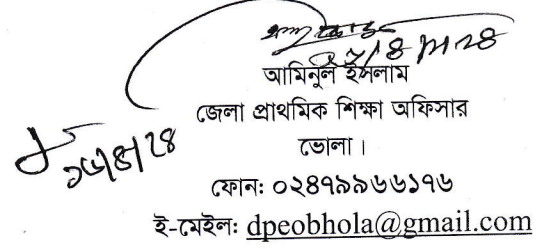 আমিনুল ইসলাম
জেলা প্রাথমিক শিক্ষা অফিসার
ভোলা।
ফোনঃ ০২৪৭৯৯৬৬১৭৬
ই-মেইলঃ dpeobhola@gmail.com